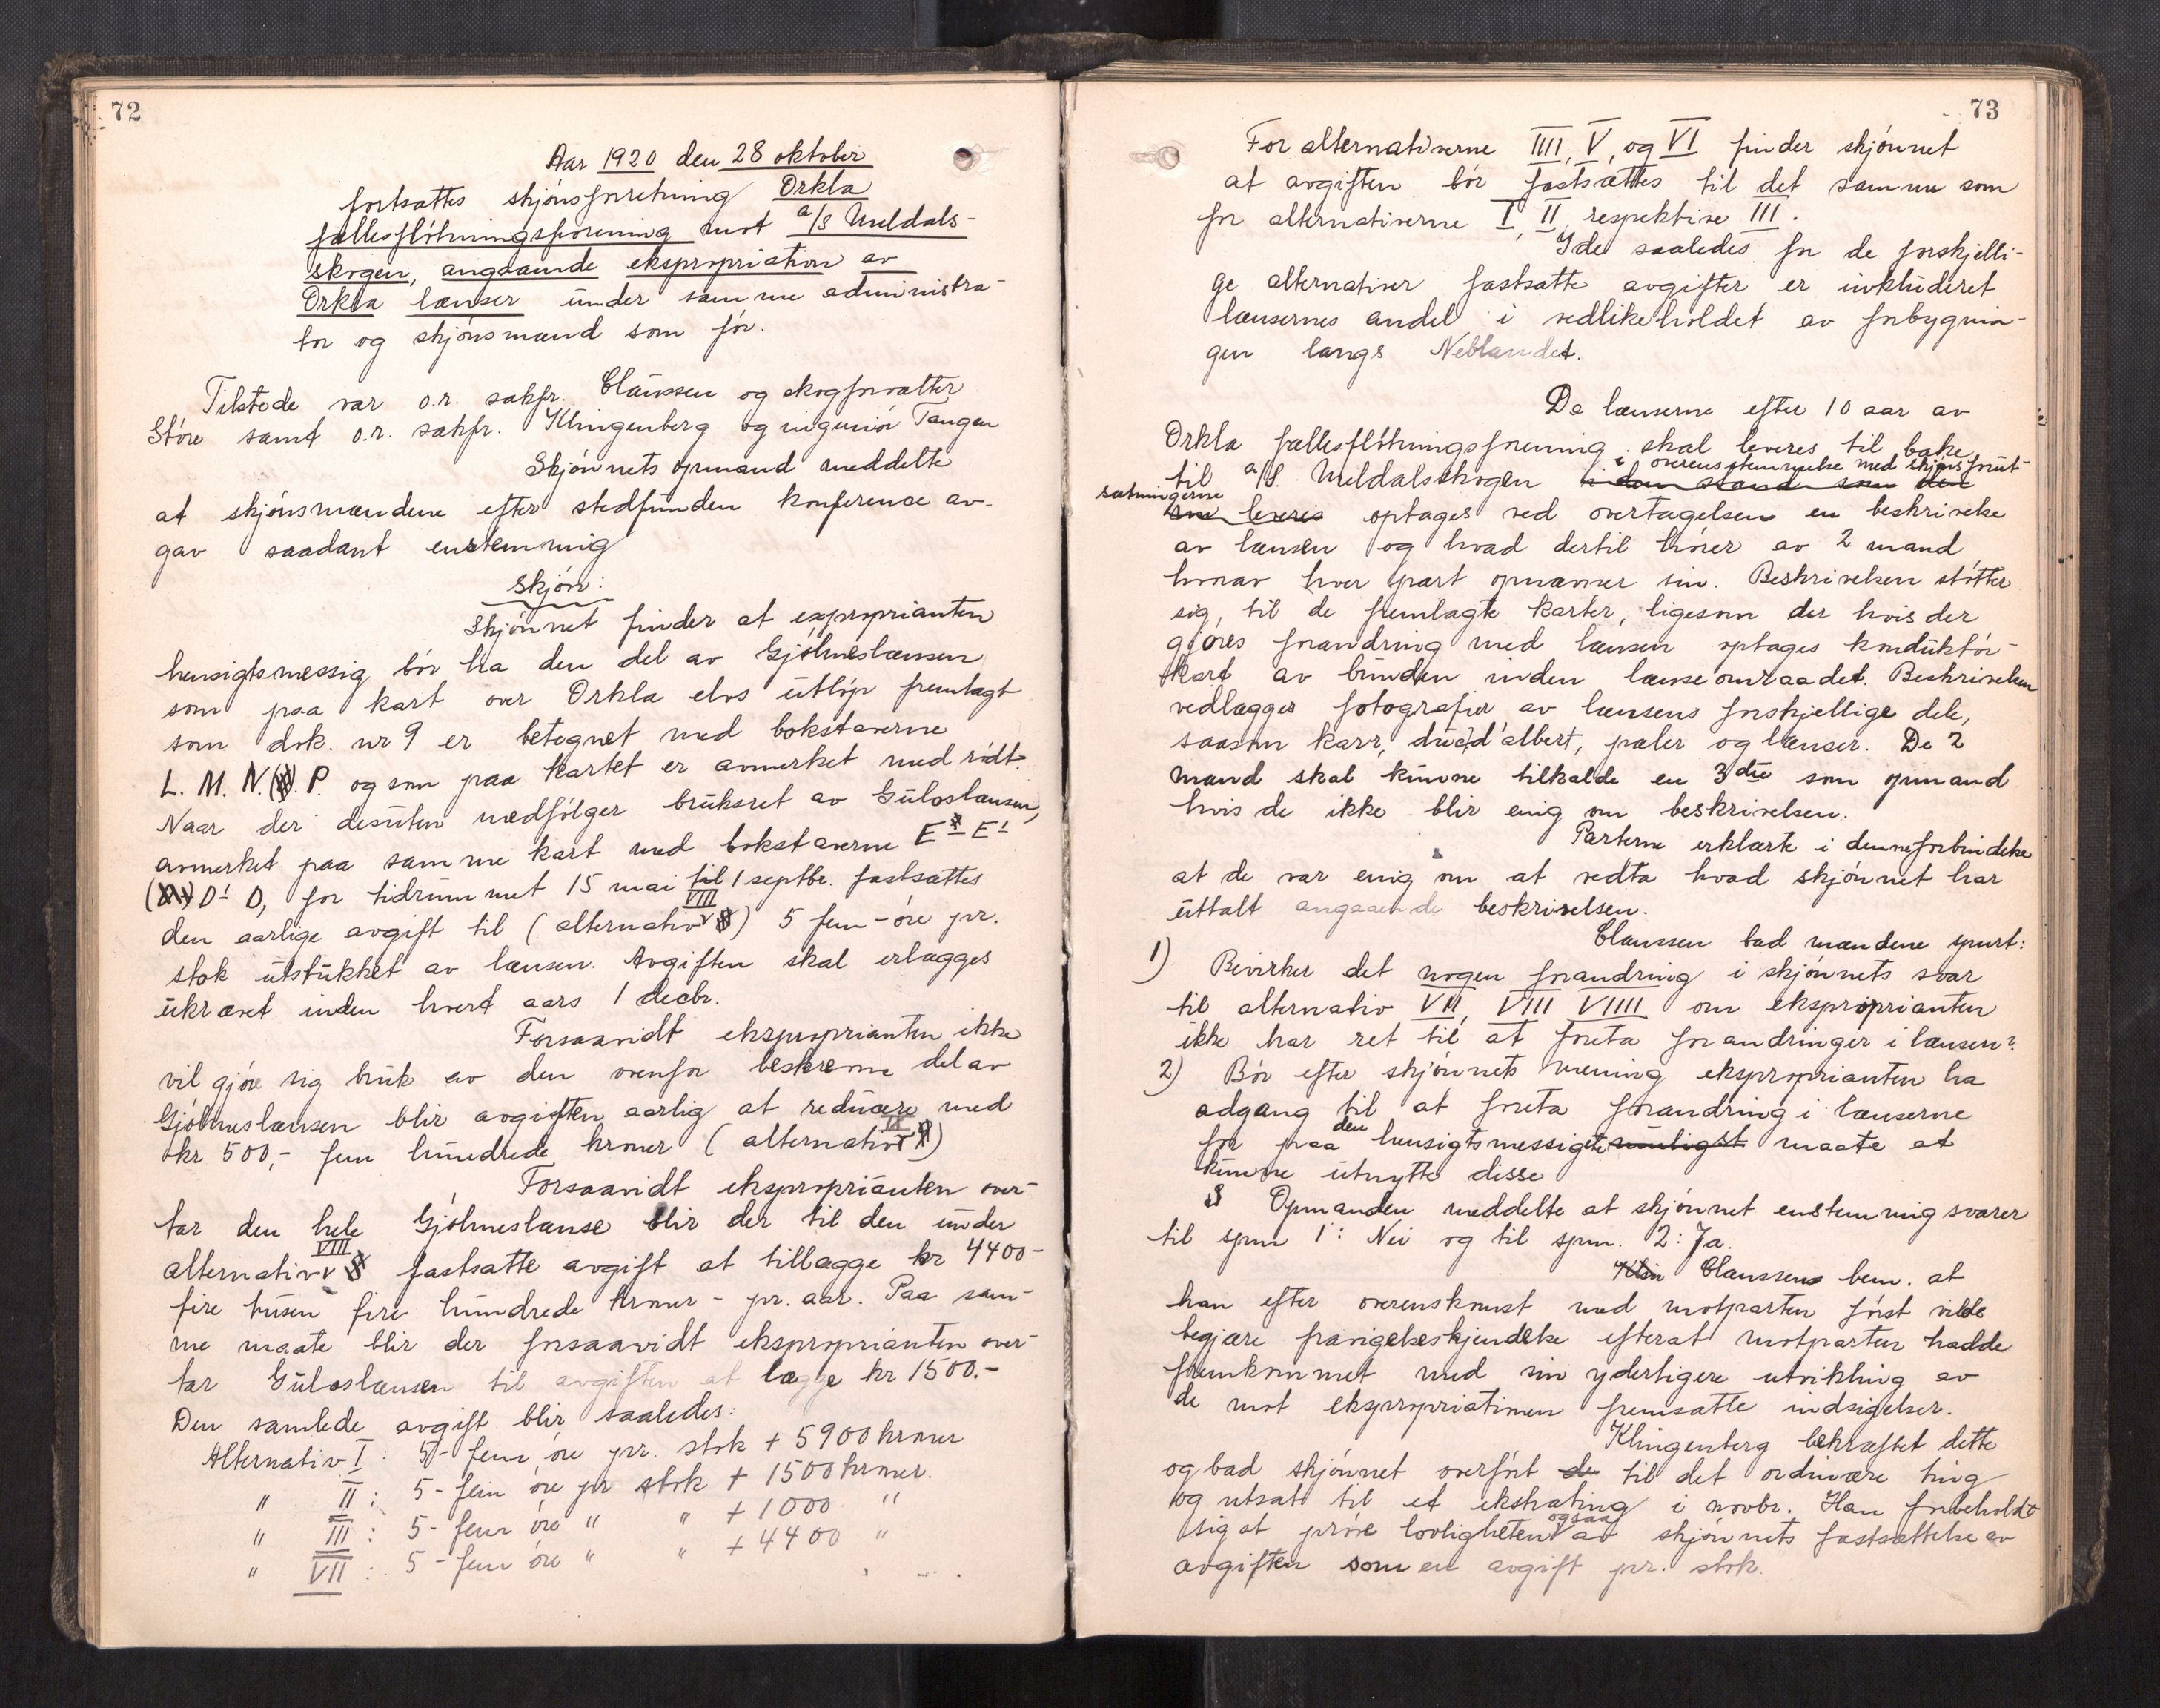 72
Aar 1920 den 28 oktober
fortsattes skjønsforretning Orkla
fællesfløtningsforening mot a/s Meldals-
skogen, angaaende ekspropriation av
Orkla lænser under samme administra-
tor og skjønsmænd som før.
Tilstede var o.r. sakfr. Claussen og skogforvalter
Støre samt o.r. sakfr. Klingenberg og ingeniør Tangen
Skjønnets opmand meddelte
at skjønsmændene efter stedfunden konference av-
gav saadant enstemmig
Skjøn:
Skjønnet finder at exproprianten
hensigtsmessig bør ha den del av Gjølmeslænsen
som paa kart over Orkla elvs utløp fremlagt
som dok. nr 9 er betegnet med bokstaverne
L. M. N. P. og som paa kartet er avmerket med rødt.
Naar der desuten medfølger bruksret av Guloslænsen,
avmerket paa samme kart med bokstaverne E E¹
D¹ D, for tidrummet 15 mai til 1 septbr. fastsættes
den aarlige avgift til (alternativ VIII) 5 fem-øre pr.
stok utstukket av lænsen. Avgiften skal erlægges
ukrævet inden hvert aars 1 decbr.
Forsaavidt eksproprianten ikke
vil gjøre sig bruk av den ovenfor beskrevne del av
Gjølmeslænsen blir avgiften aarlig at reducere med
kr 500,- fem hundrede kroner (alternativ IX)
Forsaavidt eksproprianten over-
tar den hele Gjølmeslænse blir der til den under
alternativ VIII fastsatte avgift at tillægge kr 4400-
fire tusen fire hundrede kroner - pr. aar. Paa sam-
me maate blir der forsaavidt eksproprianten over-
tar Guloslænsen til avgiften at lægge kr 1500.-
Den samlede avgift blir saaledes:
Alternativ I : 5 - fem øre pr. stok + 5900 kroner
" II : 5 - fem øre pr stok + 1500 kroner.
" III : 5 - fem øre " " + 1000 "
" VII : 5 - fem øre " " + 4400 "
73
For alternativerne IIII, V, og VI finder skjønnet
at avgiften bør fastsættes til det samme som
for alternativerne I, II, respektive III.
I de saaledes for de forskjelli-
ge alternativer fastsatte avgifter er inkluderet
lænsernes andel i vedlikeholdet av forbygnin-
gen langs Neblandet.
Da lænserne efter 10 aar av
Orkla fællesfløtningsforening skal leveres til bake
til a/s. Meldalsskogen i overensstemmelse med skjønsforut-
sætningerne i den stand som den
leveres optages ved overtagelsen en beskrivelse
av lænsen og hvad dertil hører av 2 mand
hvorav hver part opnævner sin. Beskrivelsen støtter
sig til de fremlagte karter, ligesom der hvis der
gjøres forandring med lænsen optages konduktør-
kart av bunden inden lænseomraadet. Beskrivelsen
vedlægges fotografier av lænsens forskjellige dele,
saasom karr, duc d'albert, pæler og lænser. De 2
mænd skal kunne tilkalde en 3die som opmand
hvis de ikke blir enig om beskrivelsen.
Parterne erklærte i denne forbindelse
at de var enig om at vedta hvad skjønnet har
uttalt angaaende beskrivelsen.
Claussen bad mændene spurt:
1) Bevirker det nogen forandring i skjønnets svar
til alternativ VII, VIII VIIII om eksproprianten
ikke har ret til at foreta forandringer i lænsen?
2) Bør efter skjønnets mening eksproprianten ha
adgang til at foreta forandring i lænserne
for paa den hensigtsmessigste muligst maate at
kunne utnytte disse
Opmanden meddelte at skjønnet enstemmig svarer
til spm 1: Nei og til spm. 2: Ja.
Klin Claussen bem. at
han efter overenskomst med motparten først vilde
begjære fravigelseskjendelse efterat motparten hadde
fremkommet med sin ydertigere utvikling av
de mot ekspropriationen fremsatte indsigelser.
Klingenberg bekræftet dette
og bad skjønnet overført de til det ordinære ting
og utsat til et ekstrating i novbr. Han forbeholdt
sig at prøve lovligheten ogsaa av skjønnets fastsættelse av
avgiften som en avgift pr. stok.